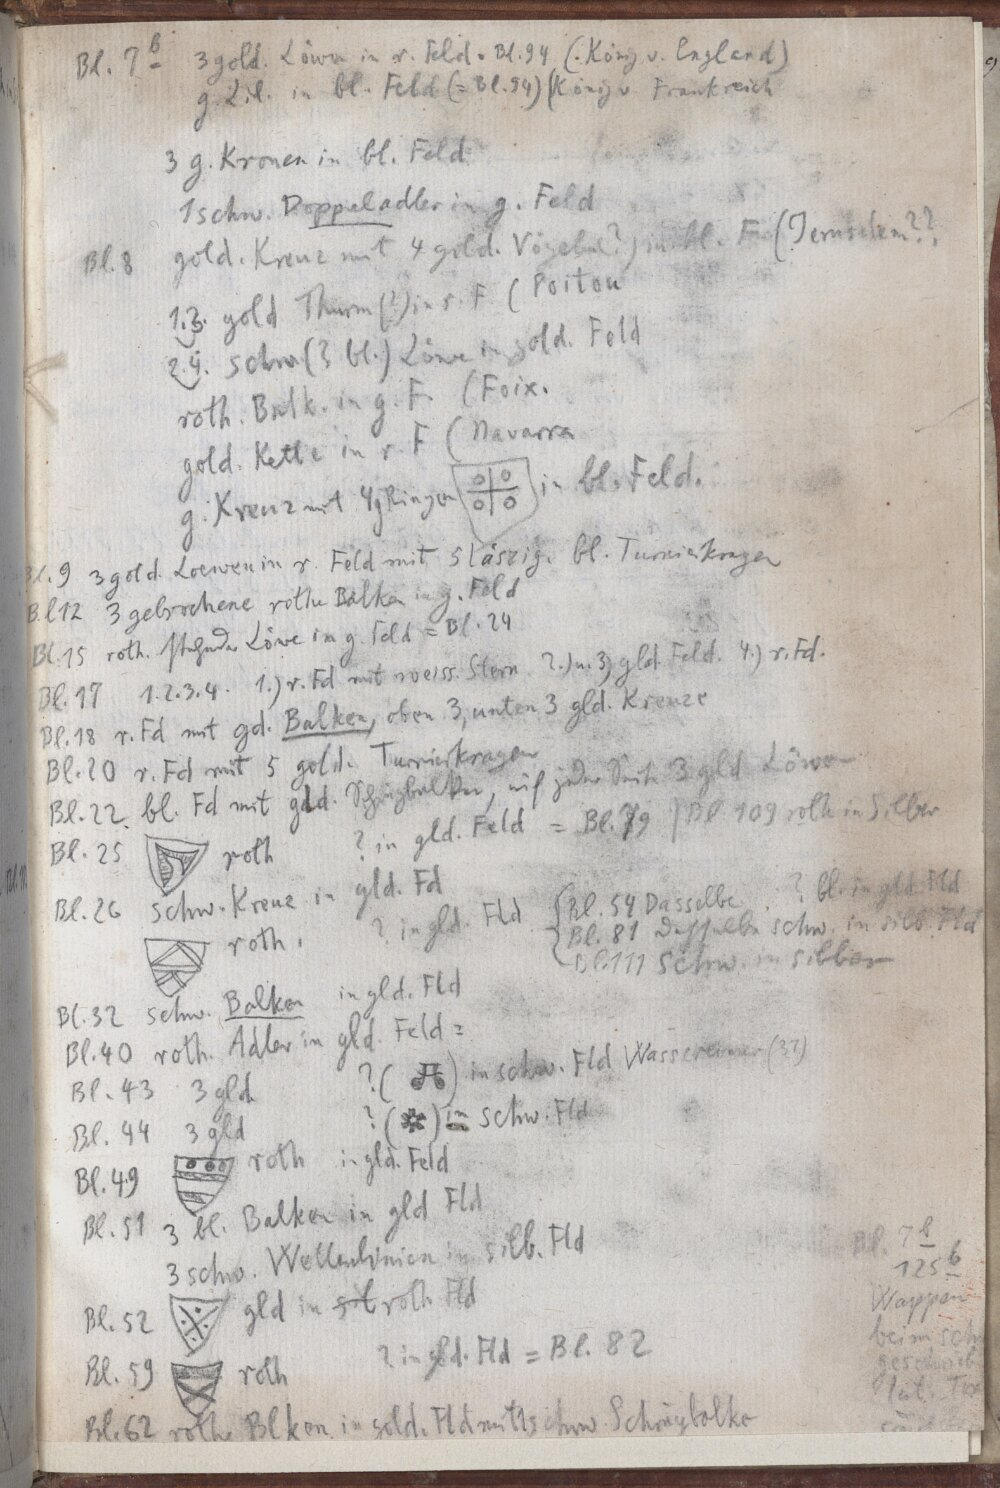 Bl. 7b 3 gold. Löwen in r. Feld = Bl. 94 (König v. England)
g. Lil. in bl. Feld (= Bl. 94) (König v Frankreich
3 g. Kronen in bl. Feld
1 schw. Doppeladler in g. Feld
Bl. 8 gold. Kreuz mit 4 gold. Vögeln(?) in bl. F. (Jerusalem??
1.3. gold Thurm (?) in r. F (Poitou
2.4. schw (? bl.) Löwe in gold. Feld
roth. Balk. in g. F. (Foix.
gold. Kette in r. F (Navarra
g. Kreuz mit 4 g Ringen in bl. Feld.
Bl. 9 3 gold. Loewen in r. Feld mit 5 läszig. bl. Turnierkragen
Bl 12 3 gebrochene rothe Balken in g. Feld
Bl. 15 roth. stehender Löwe in g. Feld = Bl. 24
Bl. 17 1.2.3.4. 1.) r. Fd mit weiss. Stern 2.) u. 3) gld Feld. 4.) r. Fd.
Bl. 18 r. Fd mit gd. Balken, oben 3, unten 3 gld. Kreuze
Bl. 20 r. Fd mit 5 gold. Turnierkragen
Bl. 22. bl. Fd mit gld. Schrägbalken, auf jeder Seite 3 gld Löwen
Bl. 25 roth ? in gld. Feld = Bl. 79 / Bl 109 roth in Silber
Bl. 26 schw. Kreuz in gld. Fd
roth. ? in gld. Fld { Bl. 54 Dasselbe ? bl. in gld Fld
Bl. 81 dasselbe schw. in silb. Fld
Bl. 111 schw. in silber
Bl. 32 schw. Balken in gld. Fld
Bl. 40 roth. Adler in gld. Feld =
Bl. 43 3 gld ? ( ) in schw. Fld Wassereimer (37)
Bl. 44 3 gld ? ( ) in schw. Fld
Bl. 49 roth in gld. Feld
Bl. 51 3 bl. Balken in gld Fld
3 schw. Wellenlinien in silb. Fld
Bl. 52 gld in roth Fld
Bl. 59 roth ? in gld. Fld = Bl. 82
Bl. 62 rothe Blken in gold. Fld mit schw Schrägbalke
Bl. 7b
125b
Wappen
beim sch
geschrieb
lat. Tex